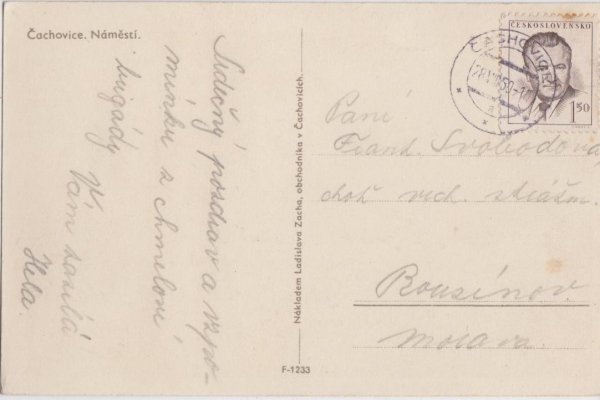 Čachovice. Náměstí.
Srdečný pozdrav a vzpo-
mínku z chmelové
brigády
Vám zasílá
Hela.
Nákladem Ladislava Zacha, obchodníka v Čachovicích.
F-1233
ČESKOSLOVENSKO
1.50
ČACHOVICE
Paní
Frant. Svobodová
choť
Rousínov.
Morava.